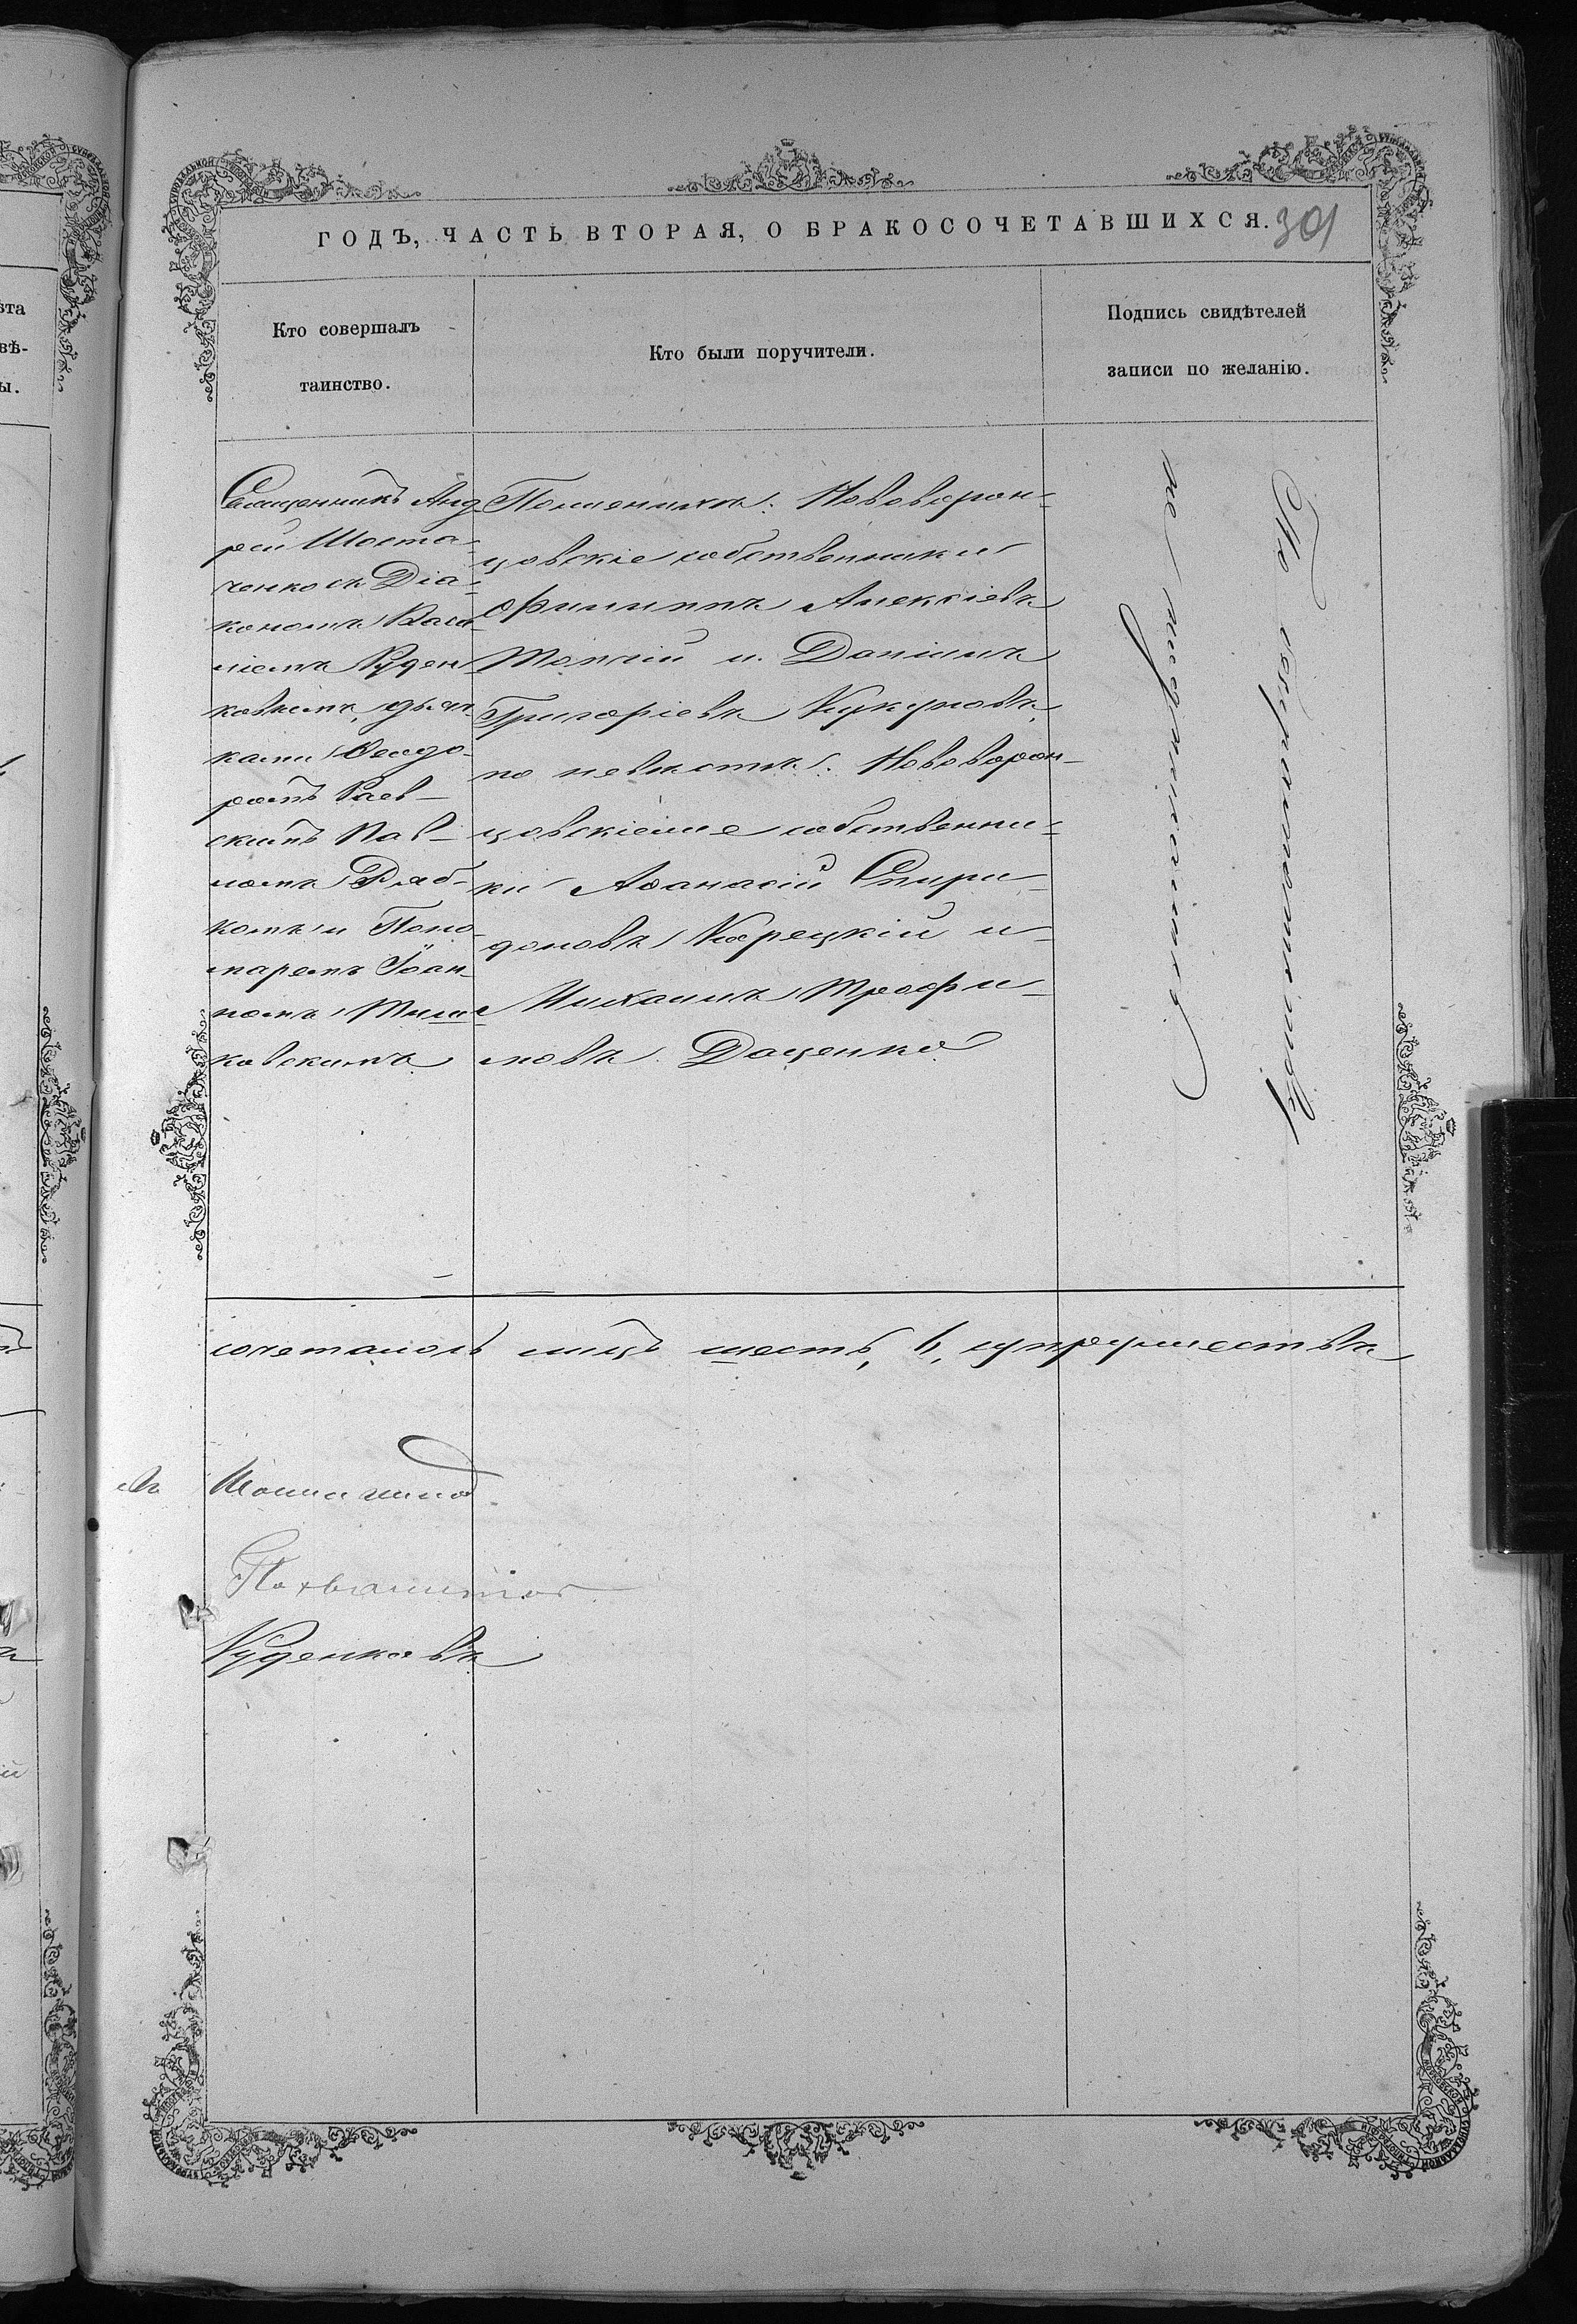 ГОДЪ, ЧАСТЬ ВТОРАЯ, О БРАКОСОЧЕТАВШИХСЯ.
301
Кто совершалъ
таинство.
Кто были поручители.
Подпись свидѣтелей
записи по желанію.
Священникъ Анд
рей Шоста-
ченко съ Діа-
кономъ Васи
ліемъ Руден
ковымъ, дьяч
ками Ѳеодо-
ромъ Раев-
скимъ Пав-
ломъ Рябко-
комъ и Поно
маремъ Іоан-
номъ
ковскимъ
По женихѣ: Нововорон-
цовскіе собственники
Филиппъ Алексіевъ
и Даніилъ
Григоріевъ Кукуловъ,
по невѣстѣ: Нововорон-
цовскіе же собственни-
ки Аѳанасій Спири-
доновъ Корецкій и
Михаилъ Трофи-
мовъ Доценко
сочеталось лицъ шесть, 6, супружествъ
Руденковъ